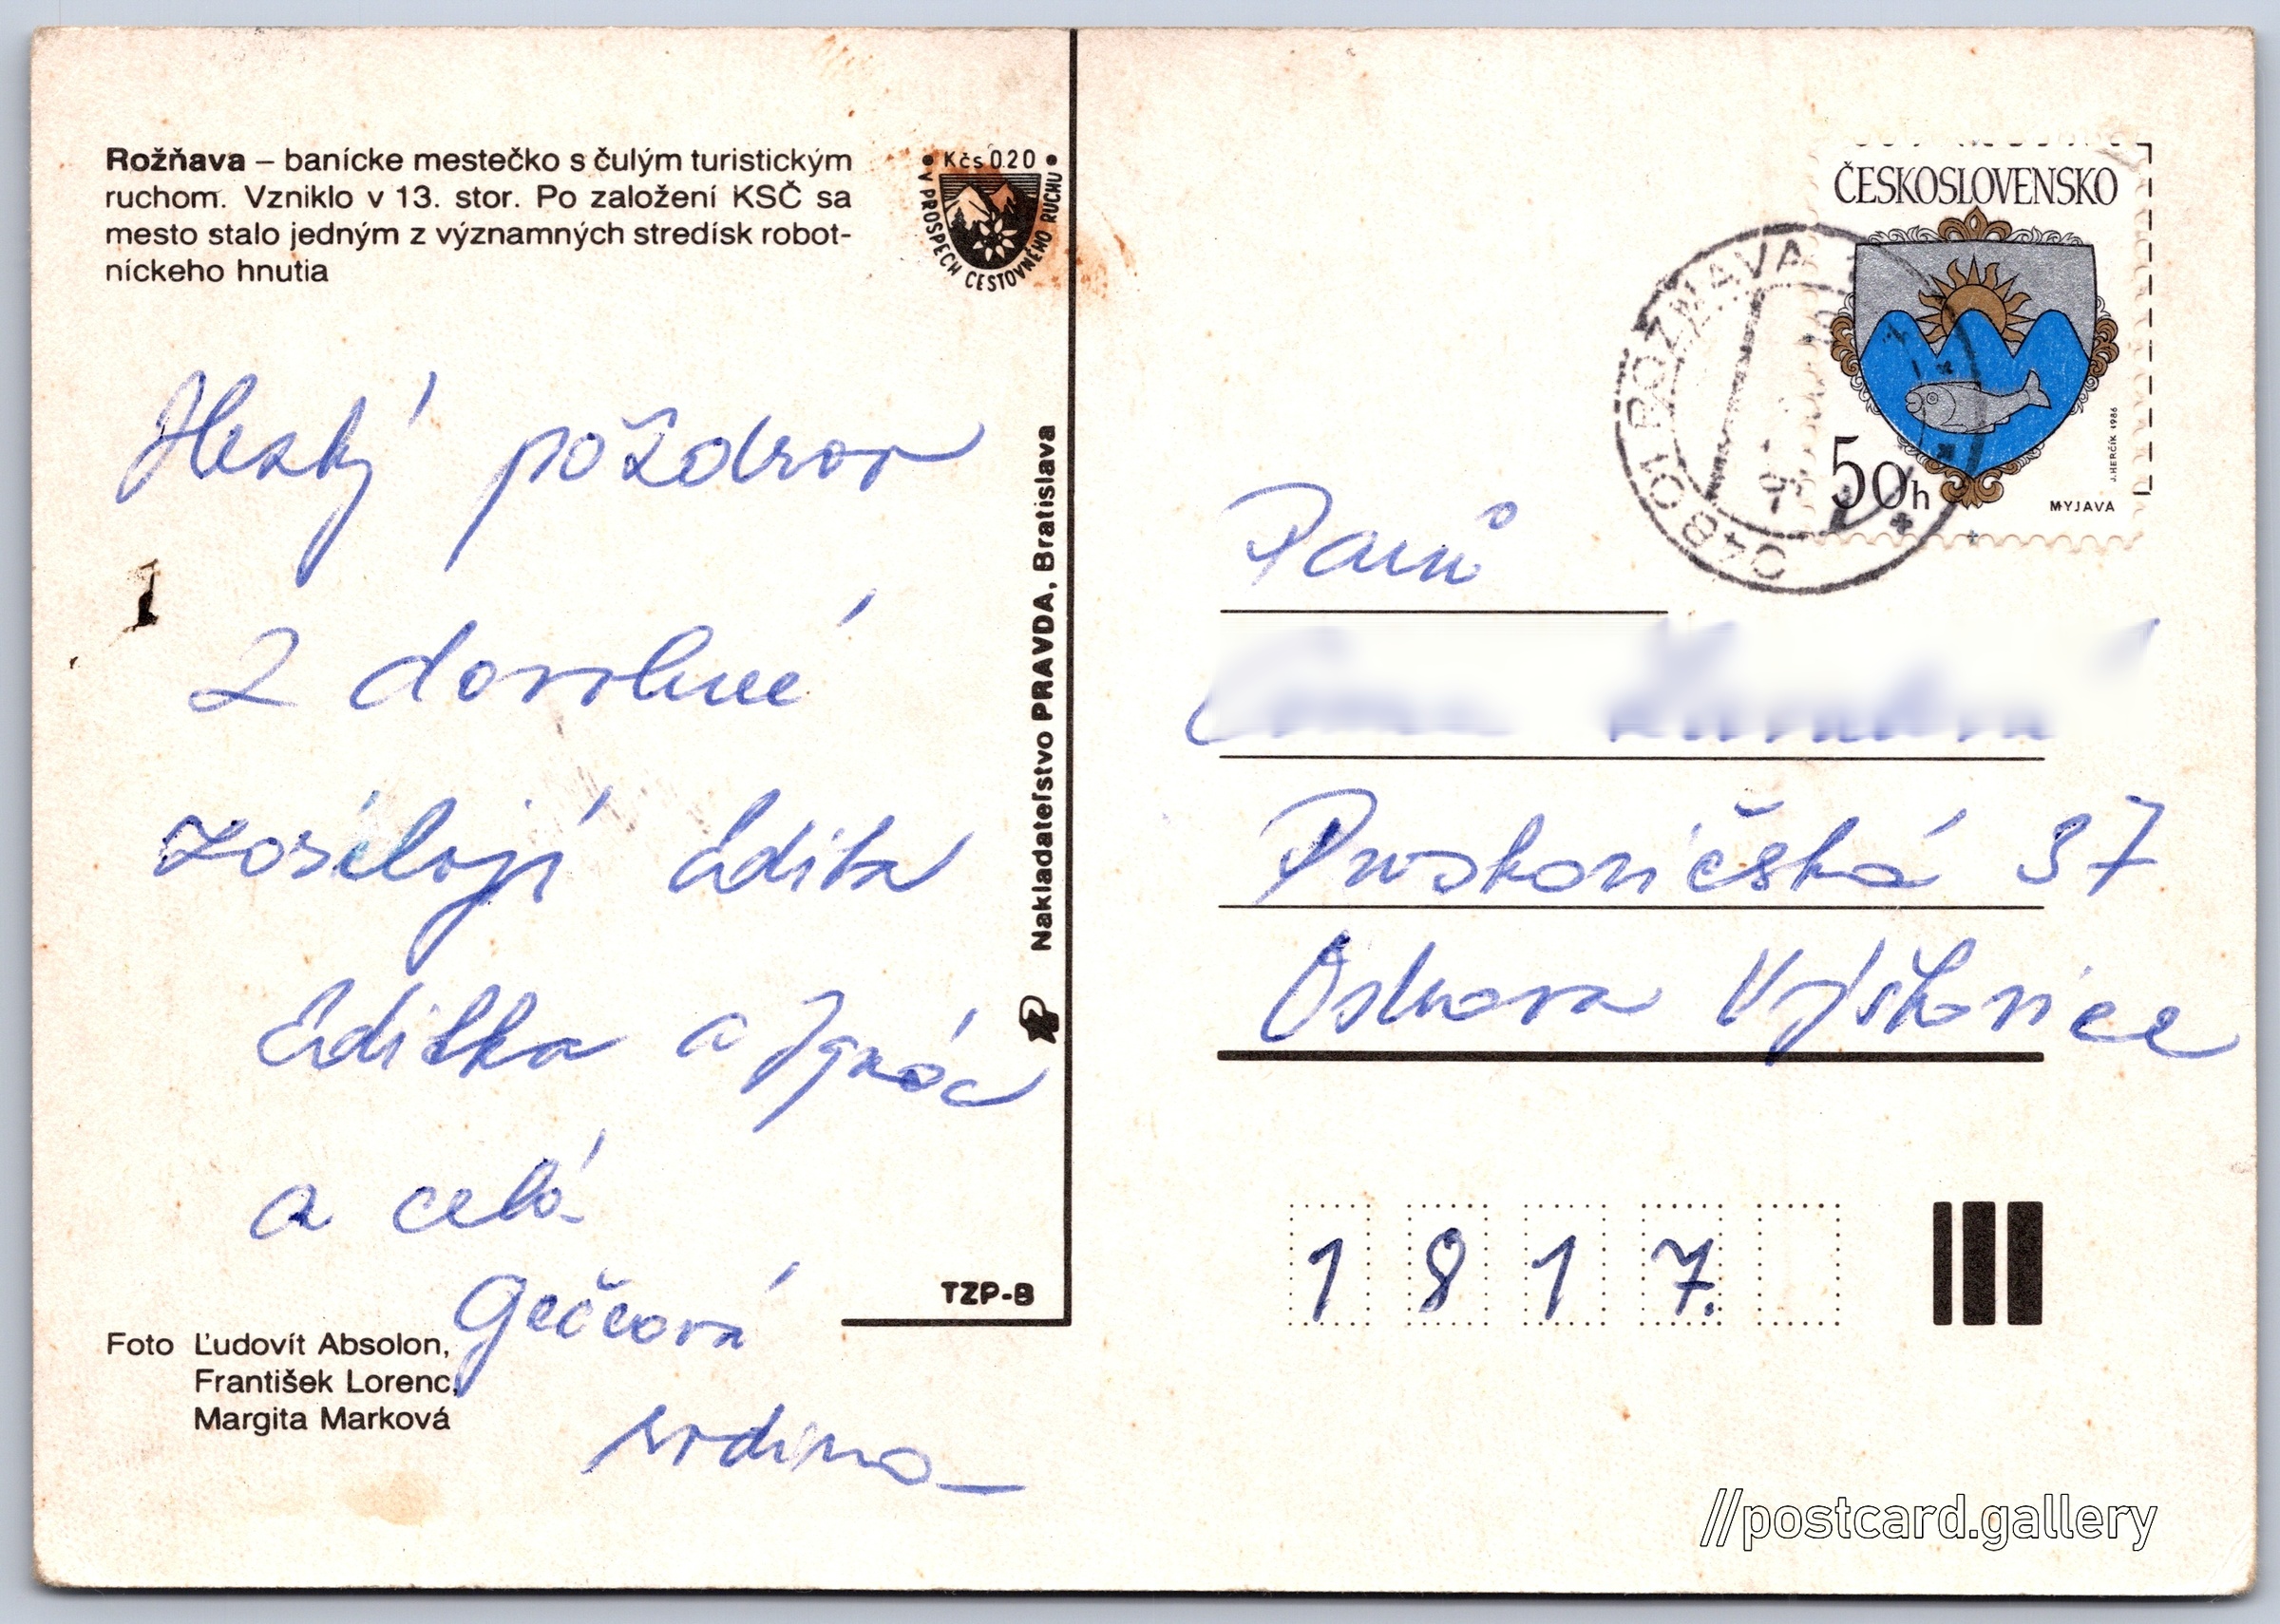 Rožňava – banícke mestečko s čulým turistickým
ruchom. Vzniklo v 13. stor. Po založení KSČ sa
mesto stalo jedným z významných stredísk robot-
níckeho hnutia
• Kčs 0.20 •
V PROSPECH CESTOVNÉHO RUCHU
Hezký pozdrav
z dovolené
zasílají Edita
Editka a Ignác
a celá
Gečeová
rodina
Foto Ľudovít Absolon,
František Lorenc,
Margita Marková
Nakladateľstvo PRAVDA, Bratislava
TZP-B
ČESKOSLOVENSKO
50h
MYJAVA
J.HERČÍK 1986
048 01 ROŽŇAVA
Proskovičská 37
Ostrava Výškovice
1 8 1 7.
//postcard.gallery